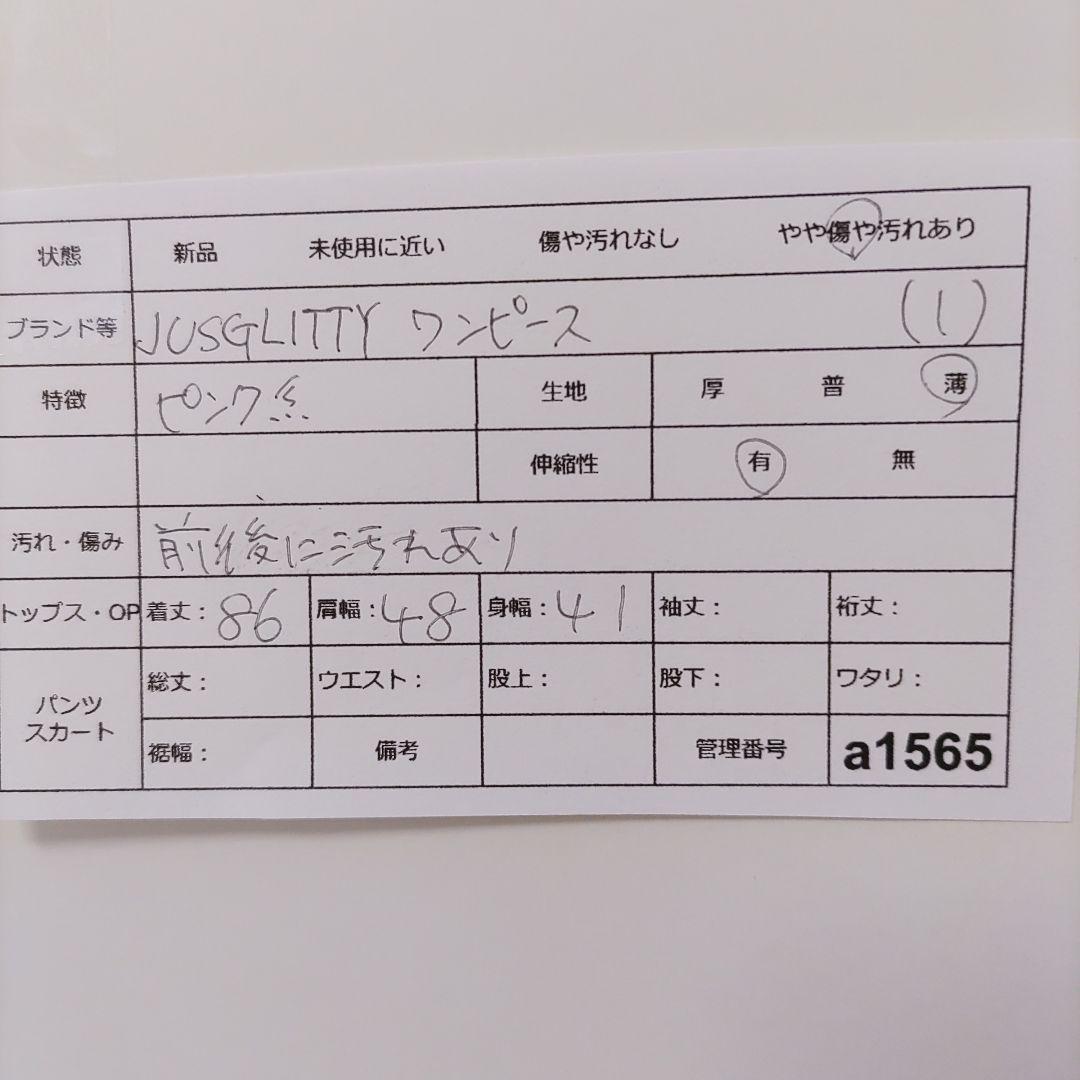 状態 新品 未使用に近い 傷や汚れなし やや傷や汚れあり
ブランド等 JUSGLITTY ワンピース (1)
特徴 ピンク系 生地 厚 普 薄
伸縮性 有 無
汚れ・傷み 前後に汚れあり
トップス・OP 着丈：86 肩幅：48 身幅：41 袖丈： 裄丈：
パンツ スカート 総丈： ウエスト： 股上： 股下： ワタリ：
裾幅： 備考 管理番号 a1565